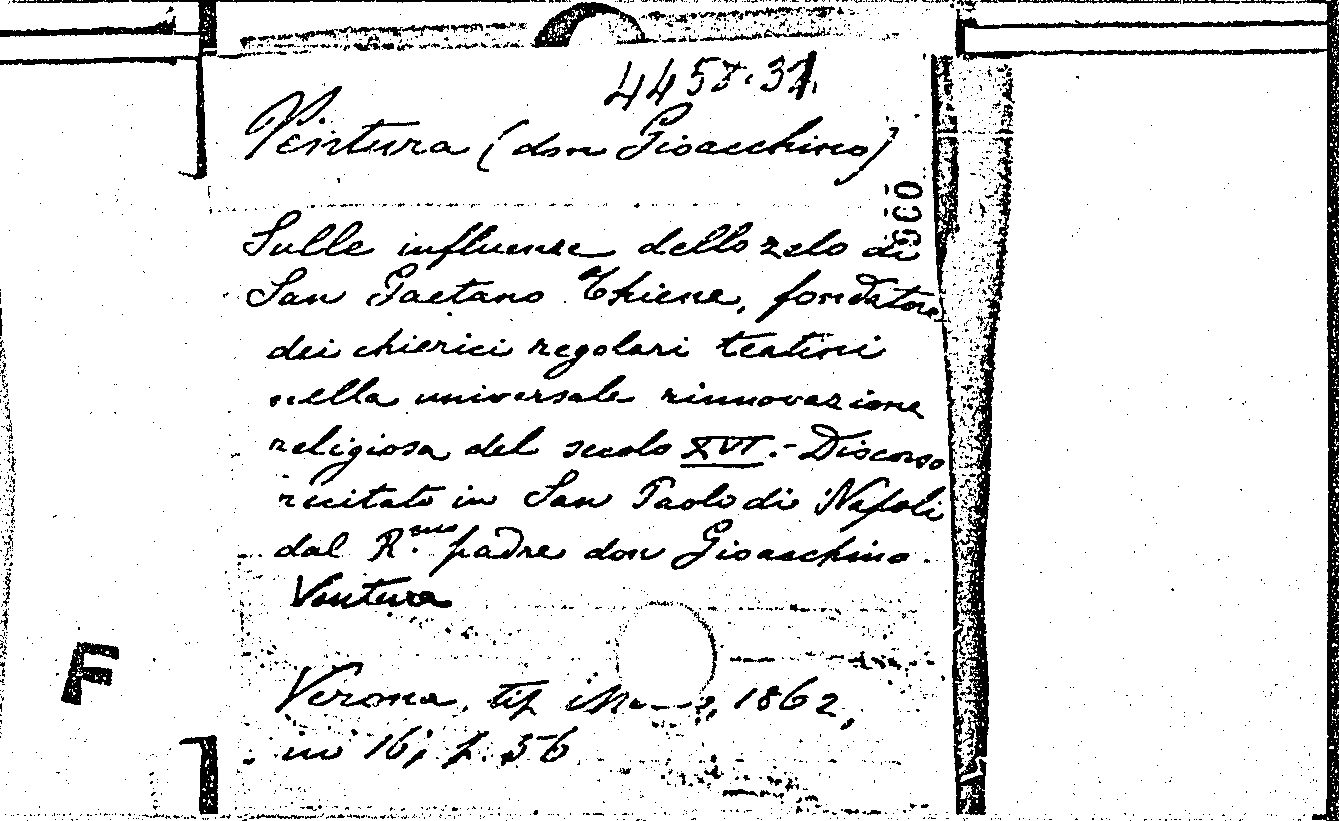 4458.31.
Ventura (don Gioacchino)
000
Sulle influenze dello zelo di
San Gaetano Thiene, fondatore
dei chierici regolari teatini
nella universale rinnovazione
religiosa del secolo XVI.- Discorso
recitato in San Paolo di Napoli
dal R.mo padre don Gioacchino
Ventura
F
Verona, tip 1862,
in 16; p. 56